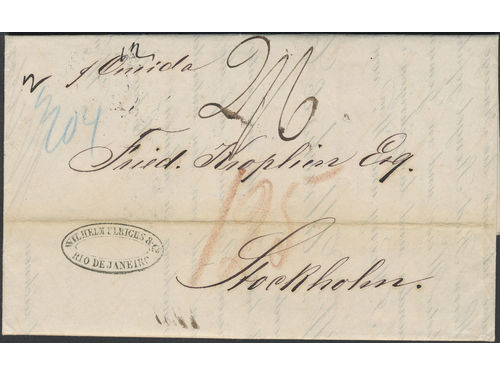 12
2
p Oneida
2/6
204
Fried. Kroplien Esq.
125
WILHELM ULRIGES & Co
RIO DE JANEIRO
Stockholm.